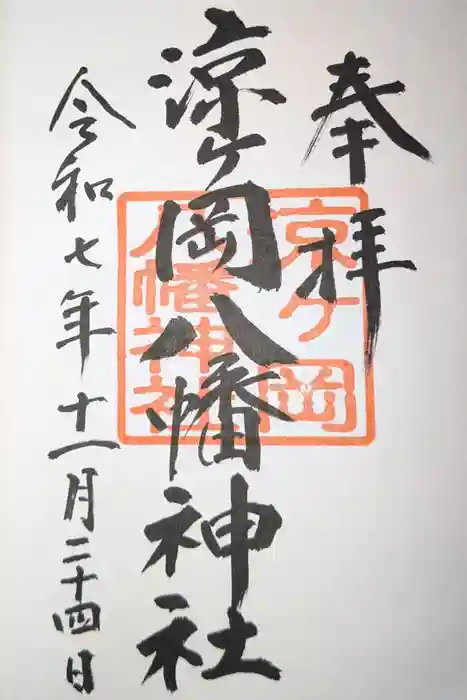 奉拝
涼ケ岡八幡神社
令和七年十一月二十四日
京ケ岡
八幡神社